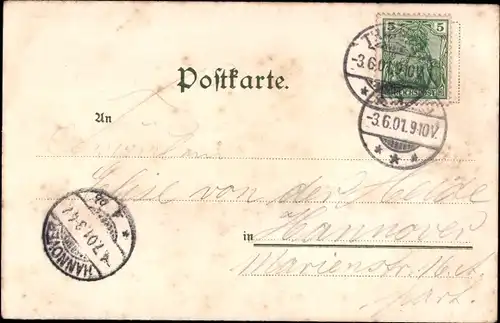 5 5
REICHSPOST
-3.6.01.9-10V.
Postkarte.
-3.6.01.9-10V.
An
Fräulein
Elise von der Heide
in Hannover
Marienstr. 16 A.
part.
HANNOVER
4.7.01.3-4